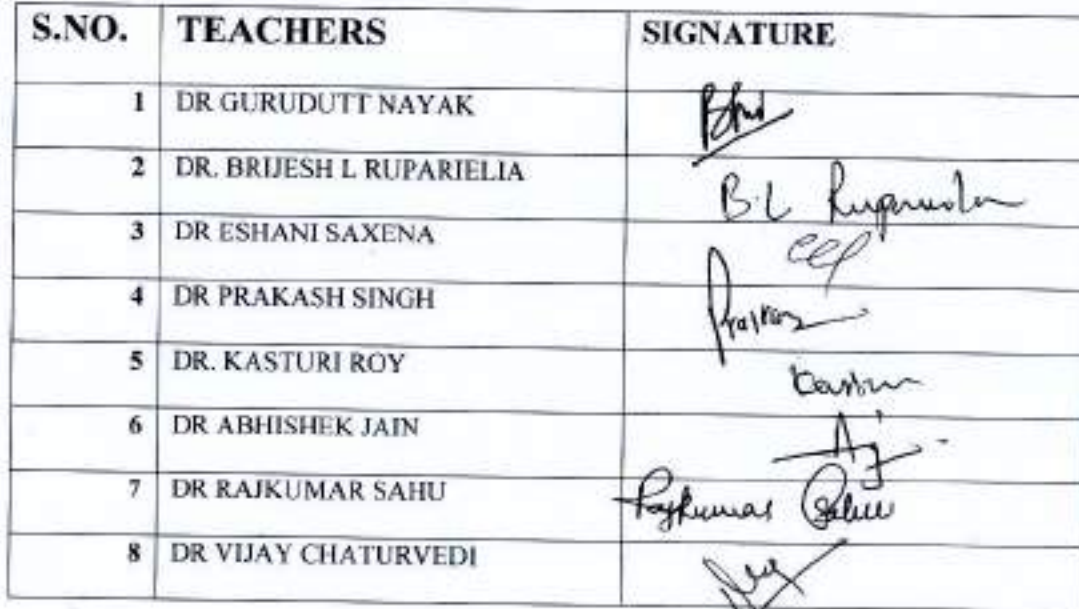 S.NO. TEACHERS SIGNATURE
1 DR GURUDUTT NAYAK
2 DR. BRIJESH L RUPARIELIA B.L Ruparielia
3 DR ESHANI SAXENA
4 DR PRAKASH SINGH Prakas
5 DR. KASTURI ROY Kasturi
6 DR ABHISHEK JAIN AJ
7 DR RAJKUMAR SAHU Rajkumar Sahu
8 DR VIJAY CHATURVEDI